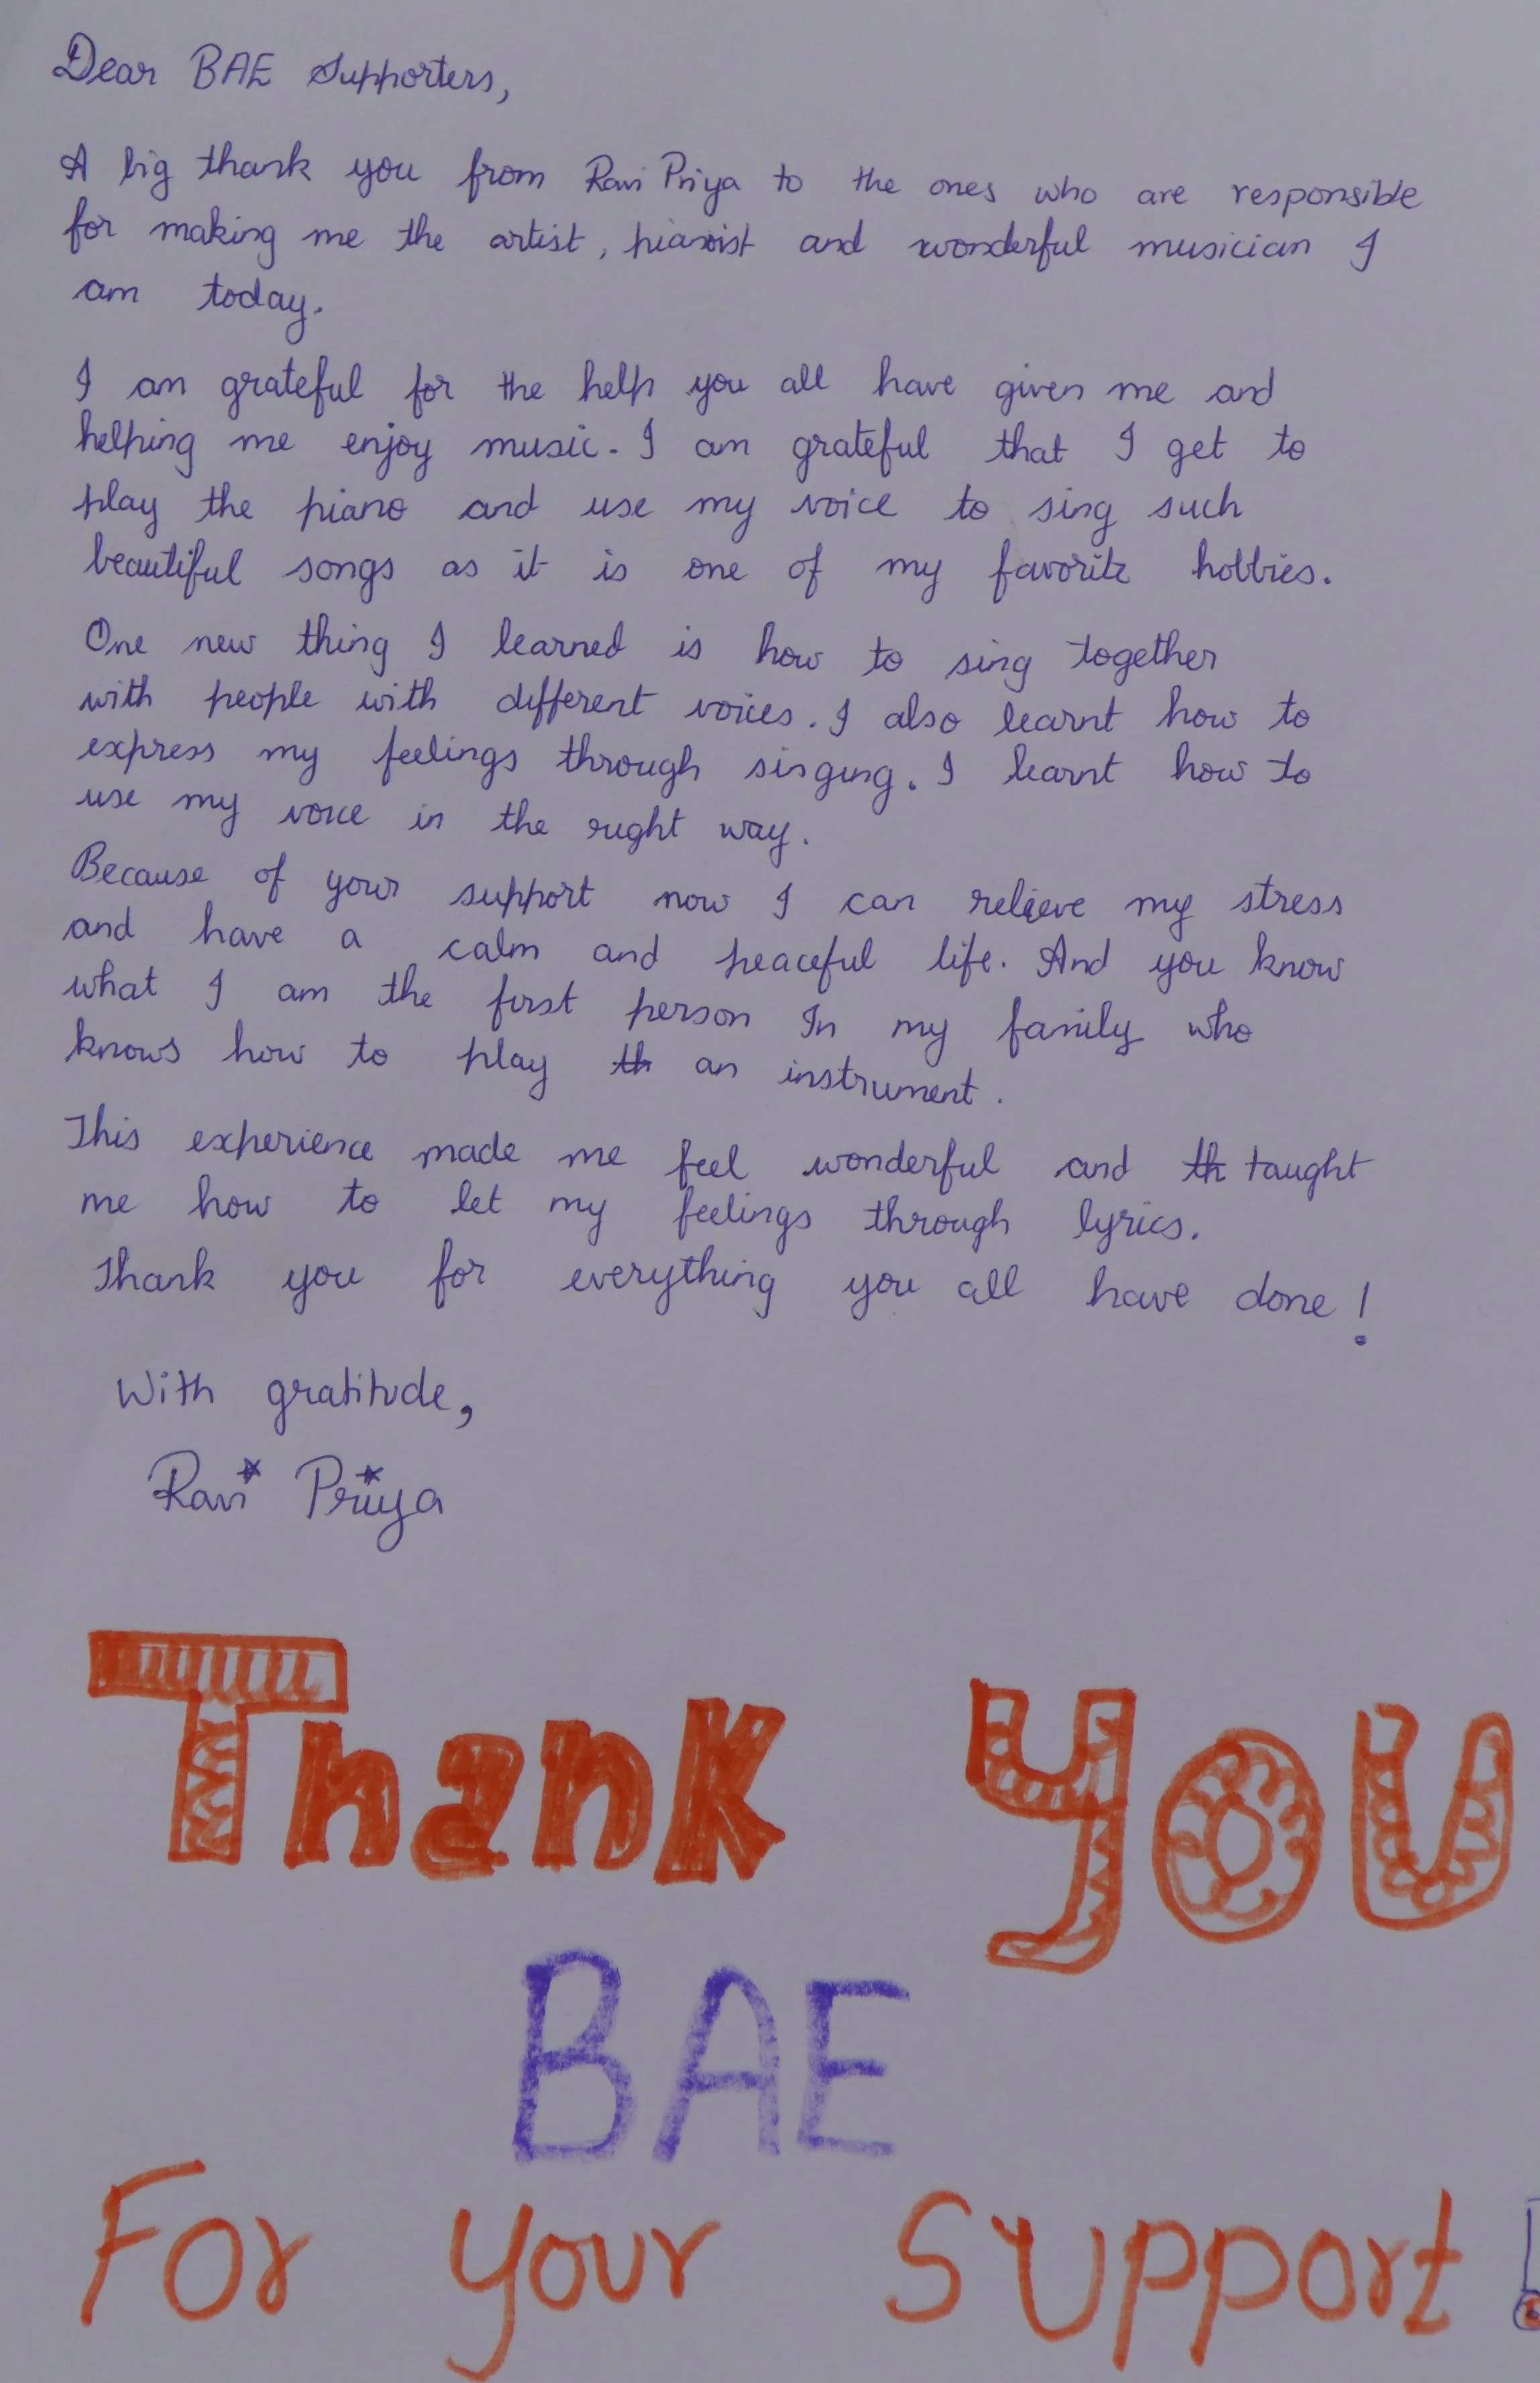 Dear BAE Supporters,
A big thank you from Ravi Priya to the ones who are responsible
for making me the artist, pianoist and wonderful musician I
am today.
I am grateful for the help you all have given me and
helping me enjoy music. I am grateful that I get to
play the piano and use my voice to sing such
beautiful songs as it is one of my favorite hobbies.
One new thing I learned is how to sing together
with people with different voices. I also learnt how to
express my feelings through singing. I learnt how to
use my voice in the right way.
Because of your support now I can relieve my stress
and have a calm and peaceful life. And you know
what I am the first person In my family who
knows how to play th an instrument.
This experience made me feel wonderful and th taught
me how to let my feelings through lyrics.
Thank you for everything you all have done!
With gratitude,
Ravi Priya
Thank You
BAE
For your Support!